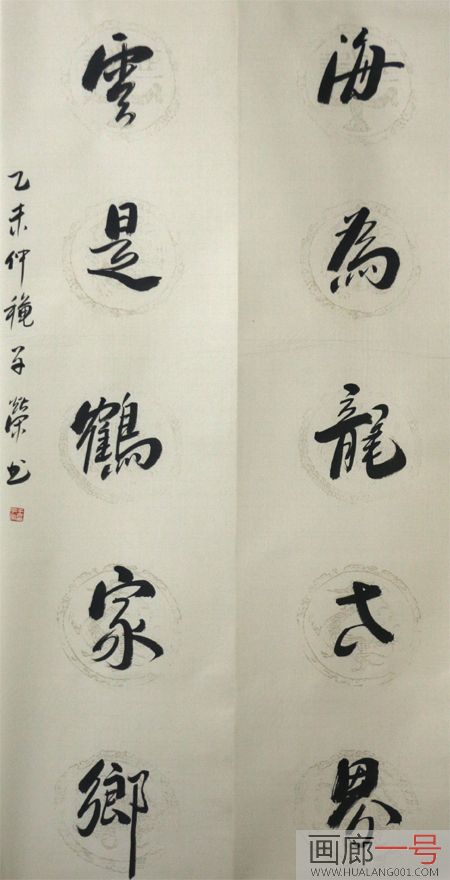 海為龍世界
雲是鶴家鄉
乙未仲穐榮书
画廊一号
WWW.HUALANG001.COM